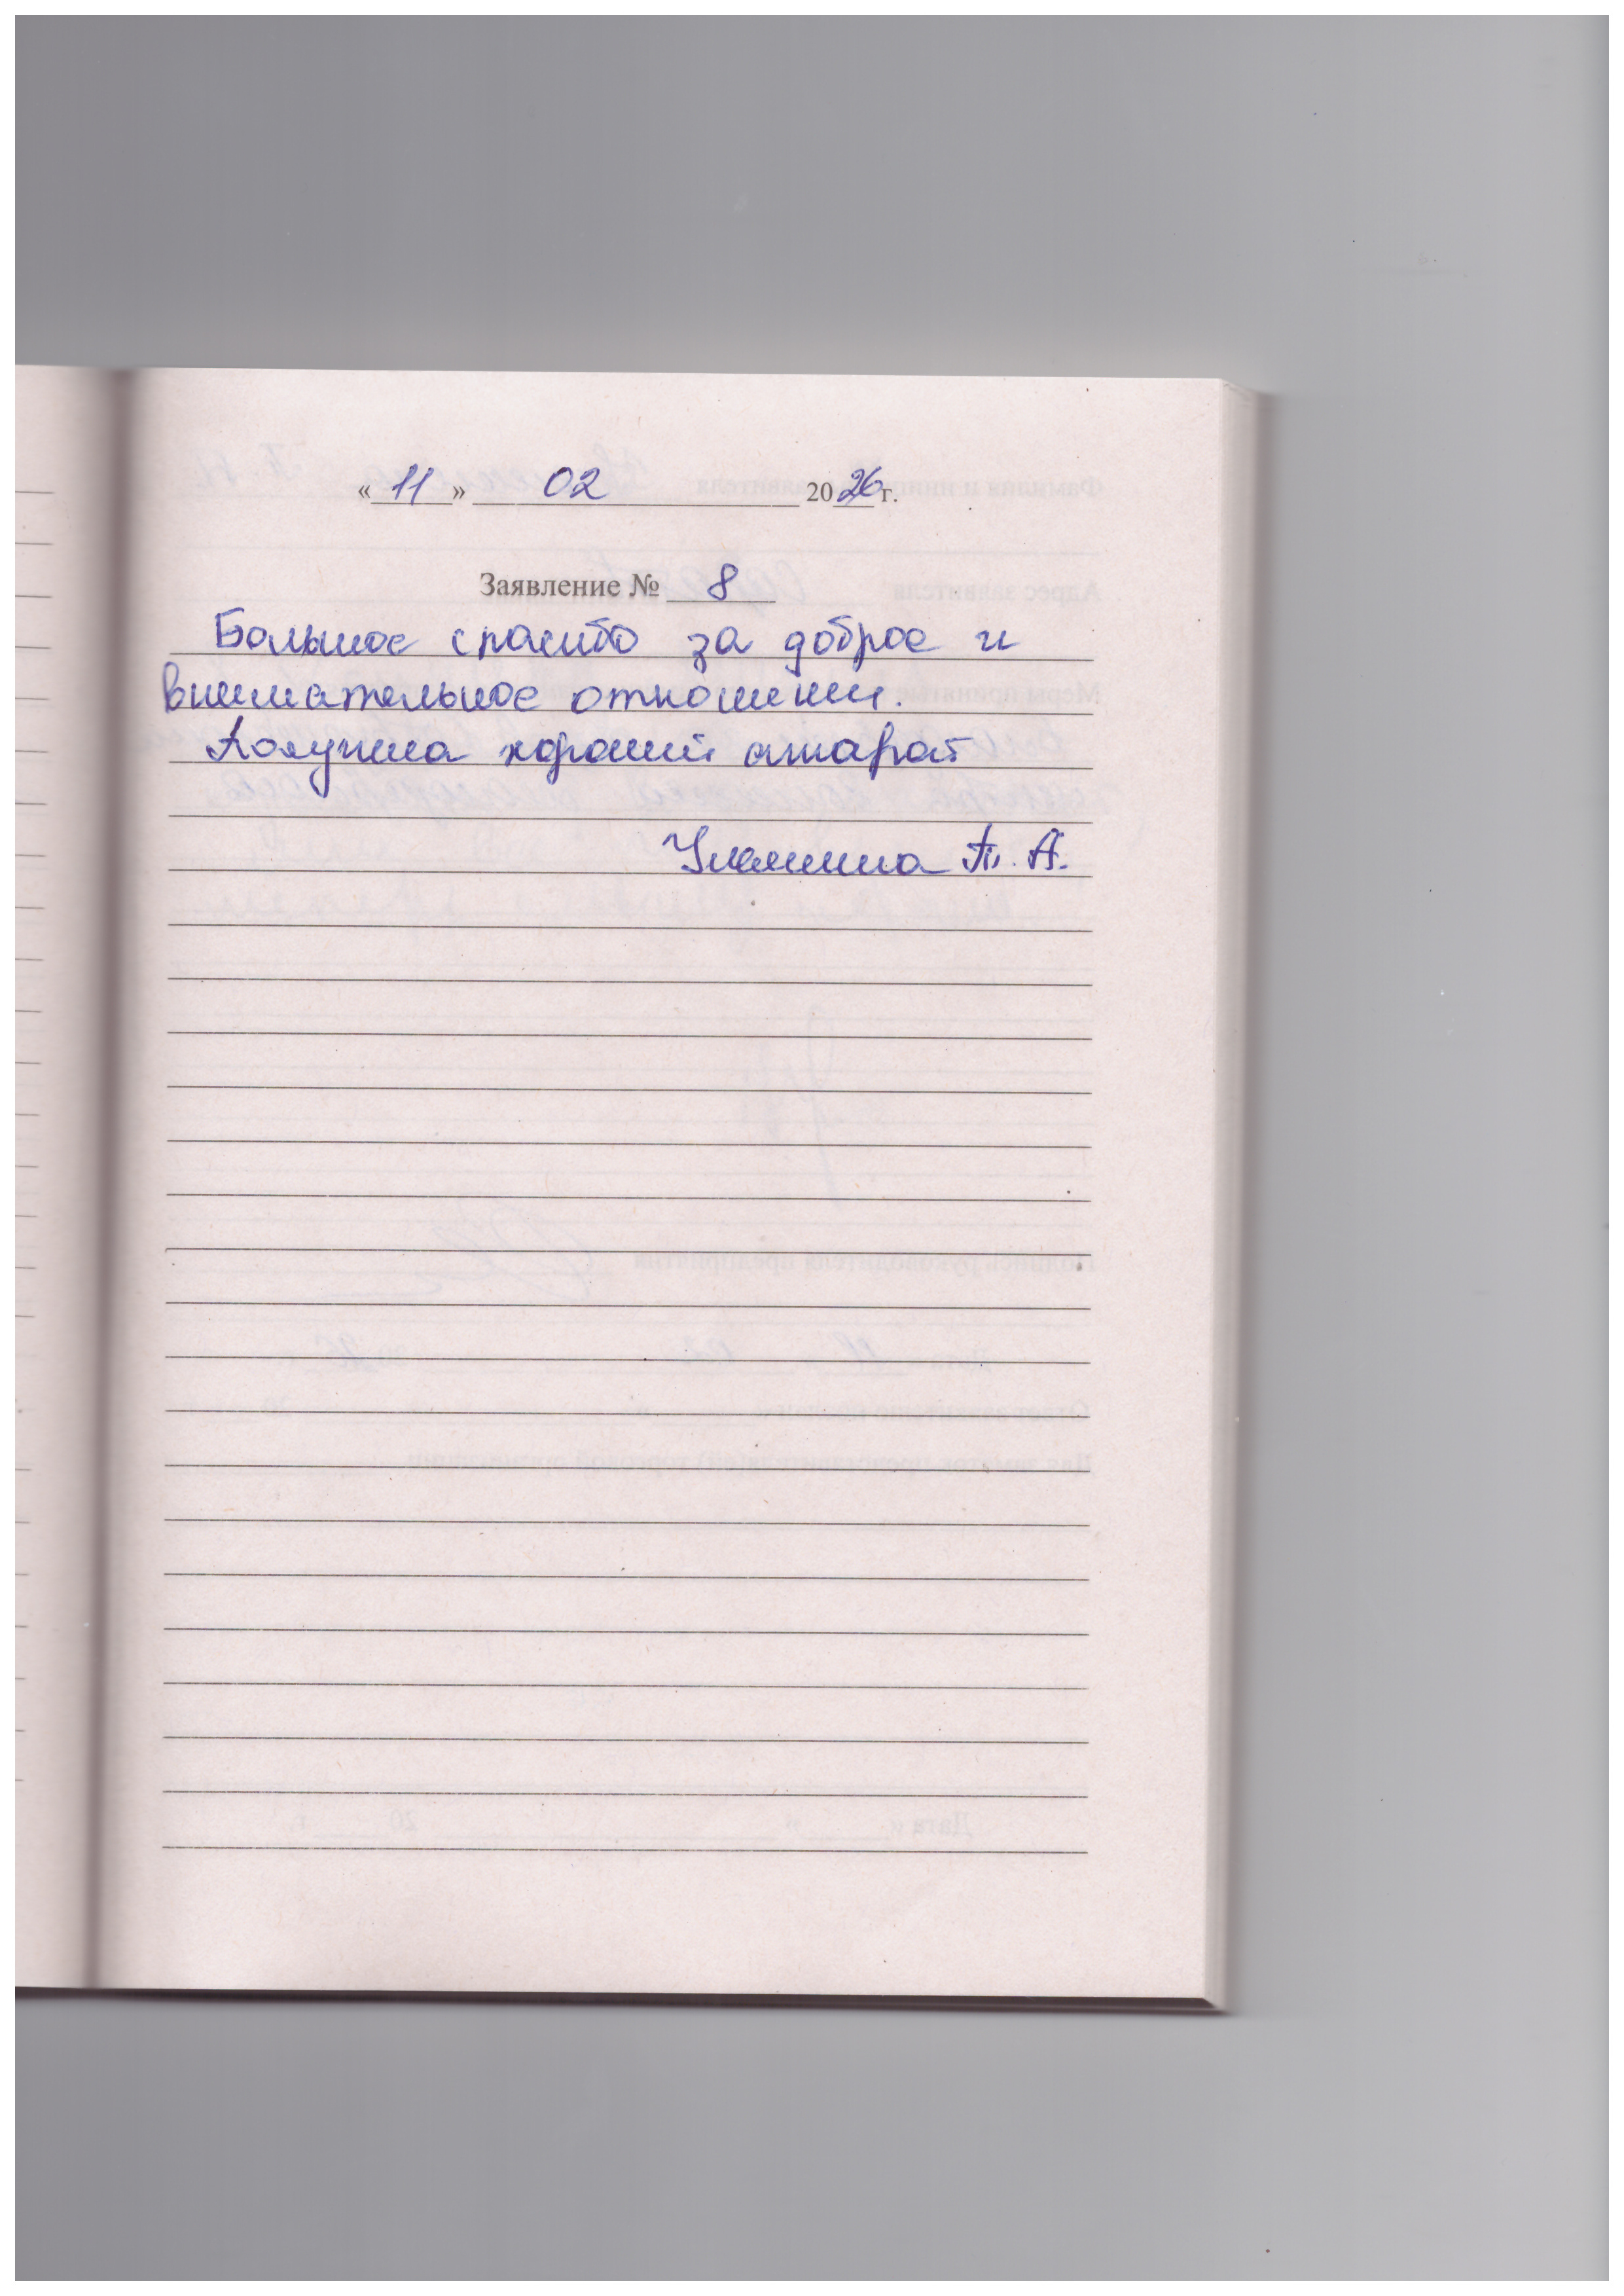 « 11 » 02 2026 г.
Заявление № 8
Большое спасибо за доброе и
внимательное отношение.
Получила хороший аппарат
А.